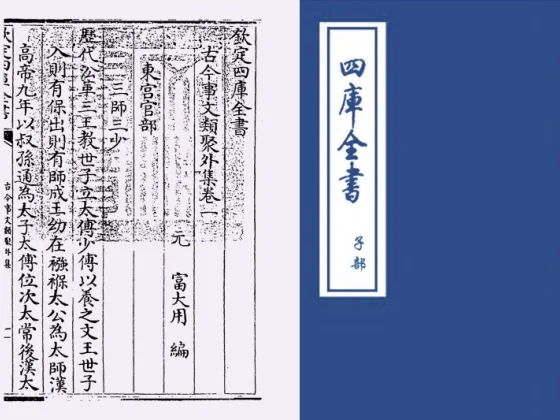 欽定四庫全書
古今事文類聚外集卷一
元 富大用 編
東宮官部
三師三少
歷代沿革三王教世子立太傅少傅以養之文王世子
入則有保出則有師成王幼在襁褓太公為太師漢
高帝九年以叔孫通為太子太傅位次太常後漢太
欽定四庫全書
古今事文類聚外集
一
四庫全書
子部